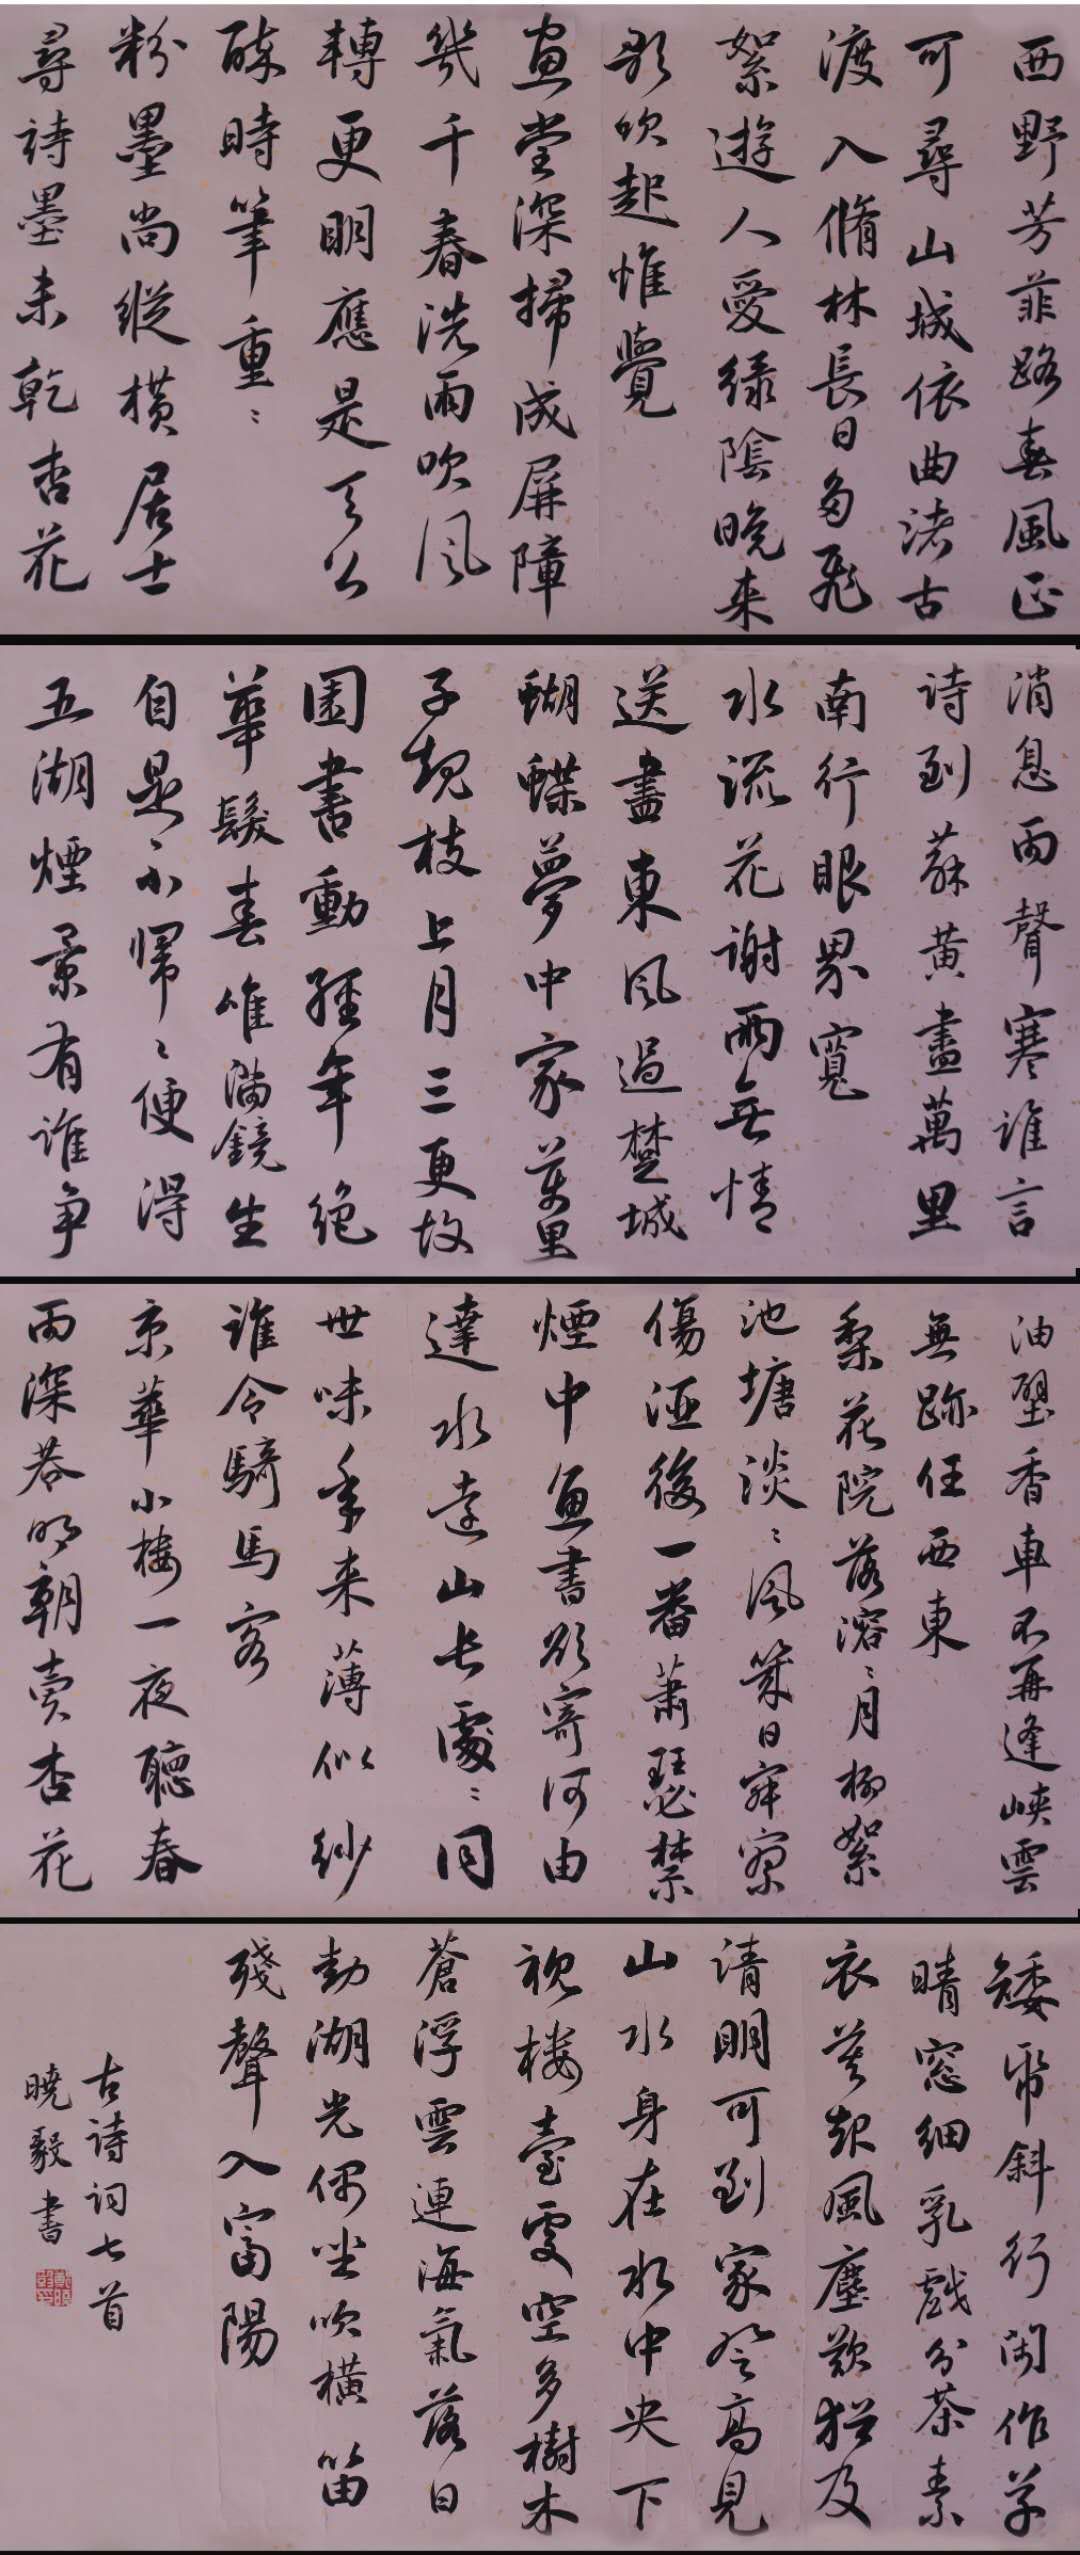 西野芳菲路春風正
可尋山城依曲渚古
渡入脩林長日多飛
絮遊人愛綠陰晚來
歌吹起惟覺
畫堂深掃成屏障
幾千春洗雨吹風
轉更明應是天公
醉時筆重〻
粉墨尚縱橫居士
尋詩墨未乾杏花
消息雨聲寒誰言
詩到蘇黃盡萬里
南行眼界寬
水流花謝兩無情
送盡東風過楚城
蝴蝶夢中家萬里
子規枝上月三更故
園書動經年絕
華髮春唯滿鏡生
自是〻不歸〻便得
五湖煙景有誰爭
油壁香車不再逢峽雲
無跡任西東
梨花院落溶〻月柳絮
池塘淡〻風幾日寂寥
傷酒後一番蕭瑟禁
煙中魚書欲寄何由
達水遠山長處〻同
世味年來薄似紗
誰令騎馬客
京華小樓一夜聽春
雨深巷明朝賣杏花
矮帋斜行閑作草
晴窗細乳戲分茶素
衣莫起風塵歎猶及
清明可到家登高見
山水身在水中央下
視樓臺處空多樹木
蒼浮雲連海氣落日
動湖光偶坐吹橫笛
殘聲入富陽
古詩詞七首
曉毅書